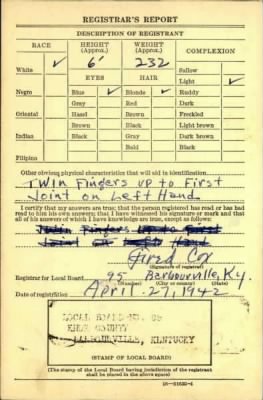 REGISTRAR'S REPORT
DESCRIPTION OF REGISTRANT
RACE HEIGHT (Approx.) WEIGHT (Approx.) COMPLEXION
White ✓ 6' 232 Sallow
EYES HAIR Light ✓
Negro Blue ✓ Blonde ✓ Ruddy
Gray Red Dark
Oriental Hazel Brown Freckled
Brown Black Light brown
Indian Black Gray Dark brown
Bald Black
Filipino
Other obvious physical characteristics that will aid in identification
Twin Fingers up to First
Joint on Left Hand.
I certify that my answers are true; that the person registered has read or has had
read to him his own answers; that I have witnessed his signature or mark and that
all of his answers of which I have knowledge are true, except as follows:
Twin Fingers up to First
Joint on Left Hand
Cox
(Signature of registrar)
Registrar for Local Board 95 Barbourville, Ky.
(Number) (City or county) (State)
Date of registration April 27, 1942
LOCAL BOARD NO. 95
KNOX COUNTY
BARBOURVILLE, KENTUCKY
(STAMP OF LOCAL BOARD)
(The stamp of the Local Board having jurisdiction of the registrant
shall be placed in the above space)